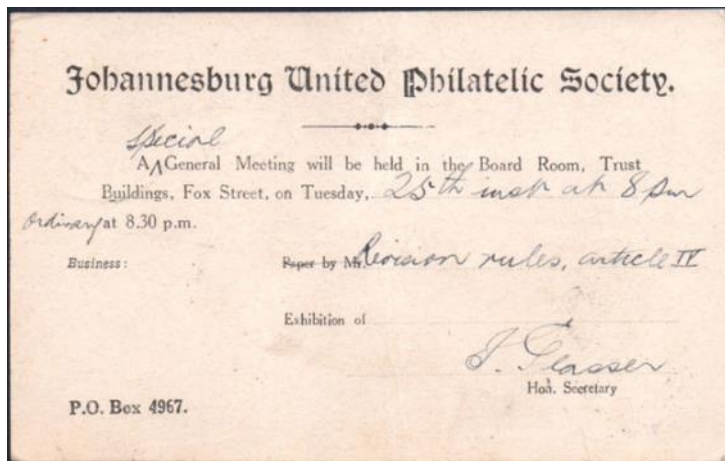 Johannesburg United Philatelic Society.
special
A General Meeting will be held in the Board Room, Trust
Buildings, Fox Street, on Tuesday, 25th inst at 8 pm
Ordinary at 8.30 p.m.
Business: Paper by Mr. Revision rules, article IV
Exhibition of
J. Glasser
Hon. Secretary
P.O. Box 4967.